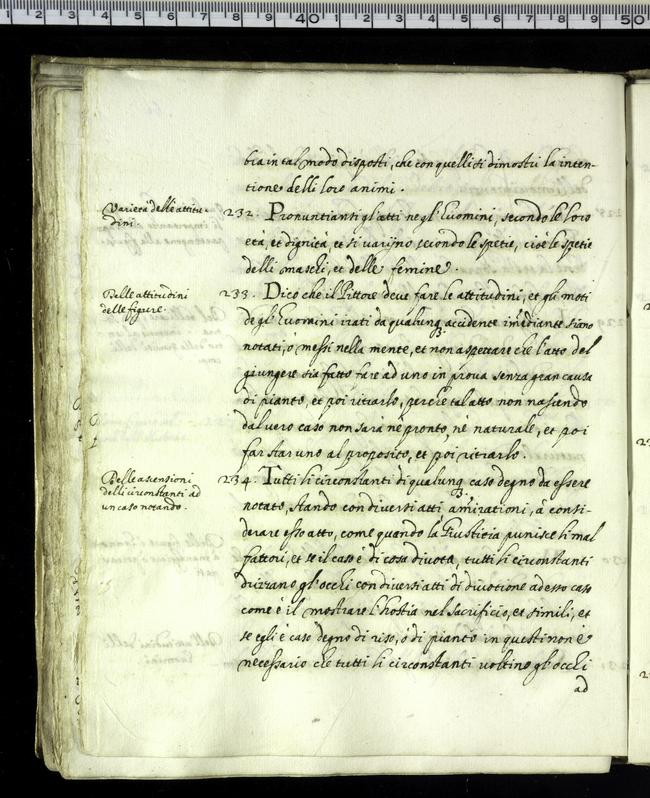 bia in tal modo disposti, che con quelli si dimostri la inten-
tione delli loro animi.
Varietà delle attitu-
dini.
232. Pronuntianti gl'atti ne gl'Euomini, secondo le loro
età, et dignità, et si varijno secondo le spetie, cioè le spetie
delli maschi, et delle femine.
Delle attitudini
delle figure.
233. Dico che il Pittore deve fare le attitudini, et gli moti
de gl'Euomini irati da qualunq. accidente imediante siano
notati, ò messi nella mente, et non aspettare che l'atto del
giungere sia fatto fare ad uno in prova senza gran causa
di pianto, et poi ritrarlo, perche tal atto non nascendo
dal vero caso non sarà ne pronto, nè naturale, et poi
far star uno al proposito, et poi ritrarlo.
Delle
delli circonstanti ad
un caso notando.
234. Tutti li circonstanti di qualunq. caso degno da essere
notato, stando con diversi atti amirationi, à consi-
derare esso atto, come quando la Giustitia punisce li mal
fattori, et se il caso è di cosa divota, tutti li circonstanti
drizzano gl'occhi con diversi atti di divotione ad esso caso
come è il mostrare l'hostia nel sacrificio, et simili, et
se egli è caso degno di riso, ò di pianto in questi non è
necessario che tutti li circonstanti voltino gl'occhi
ad